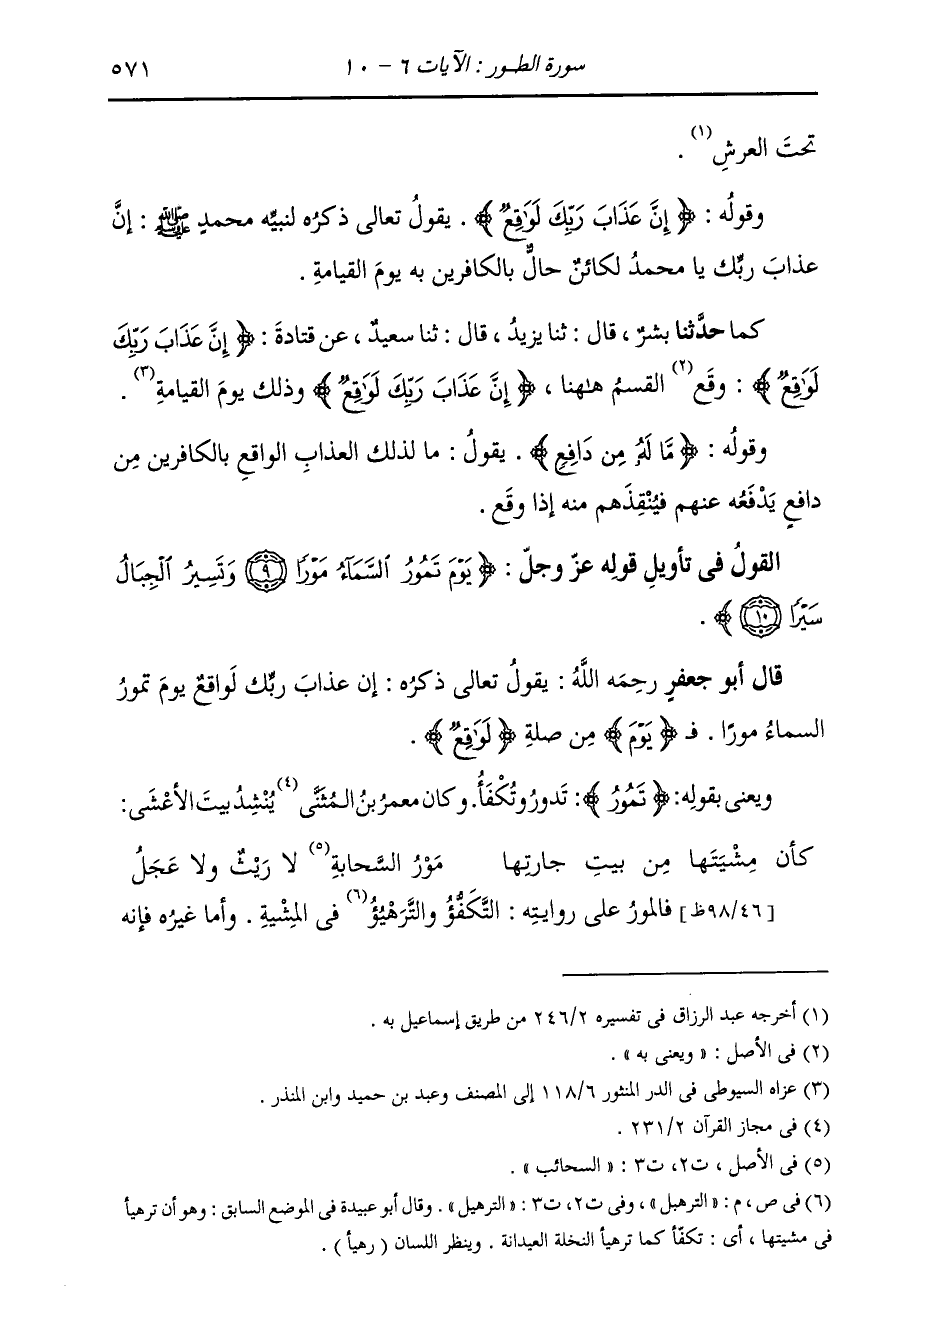 سورة الطـور : الآيات ٦ - ١٠
٥٧١
تحتَ العرشِ(١) .
وقولُه : ﴿ إِنَّ عَذَابَ رَبِّكَ لَوَٰقِعٌ ﴾ . يقولُ تعالى ذكرُه لنبيِّه محمدٍ ﷺ : إنَّ
عذابَ ربِّك يا محمدُ لكائنٌ حالٌّ بالكافرين به يومَ القيامةِ .
كما حدَّثنا بشرٌ ، قال : ثنا يزيدُ ، قال : ثنا سعيدٌ ، عن قتادةَ : ﴿ إِنَّ عَذَابَ رَبِّكَ
لَوَٰقِعٌ ﴾ : وقَع(٢) القسمُ هٰهنا ، ﴿ إِنَّ عَذَابَ رَبِّكَ لَوَٰقِعٌ ﴾ وذلك يومَ القيامةِ(٣) .
وقولُه : ﴿ مَّا لَهُۥ مِن دَافِعٍ ﴾ . يقولُ : ما لذلك العذابِ الواقعِ بالكافرين مِن
دافعٍ يَدْفَعُه عنهم فيُنْقِذَهم منه إذا وقَع .
القولُ فى تأويلِ قولِه عزّ وجلّ : ﴿ يَوْمَ تَمُورُ ٱلسَّمَآءُ مَوْرًا ۝٩ وَتَسِيرُ ٱلْجِبَالُ
سَيْرًا ۝١٠ ﴾ .
قال أبو جعفرٍ رحِمَه اللَّهُ : يقولُ تعالى ذكرُه : إن عذابَ ربِّك لَواقعٌ يومَ تمورُ
السماءُ مورًا . فـ ﴿ يَوْمَ ﴾ مِن صلةِ ﴿ لَوَٰقِعٌ ﴾ .
ويعنى بقولِه: ﴿ تَمُورُ ﴾: تَدورُ وتُكْفَأُ. وكان معمرُ بنُ المُثَنَّى(٤) يُنْشِدُ بيتَ الأعْشَى:
كأن مِشْيَتَها مِن بيتِ جارتِها مَوْرُ السَّحابةِ(٥) لا رَيْثٌ ولا عَجَلُ
[٩٨/٤٦ظ] فالمورُ على روايتِه : التَّكَفُّؤُ والتَّرَهْيُؤُ(٦) فى المِشْيةِ . وأما غيرُه فإنه
(١) أخرجه عبد الرزاق فى تفسيره ٢٤٦/٢ من طريق إسماعيل به .
(٢) فى الأصل : « ويعنى به » .
(٣) عزاه السيوطى فى الدر المنثور ١١٨/٦ إلى المصنف وعبد بن حميد وابن المنذر .
(٤) فى مجاز القرآن ٢٣١/٢ .
(٥) فى الأصل ، ت٢، ت٣ : « السحائب » .
(٦) فى ص ، م : « الترهبل » ، وفى ت٢، ت٣ : « الترهيل » . وقال أبو عبيدة فى الموضع السابق : وهو أن ترهيأ
فى مشيتها ، أى : تكفّأ كما ترهيأ النخلة العيدانة . وينظر اللسان ( رهيأ ) .